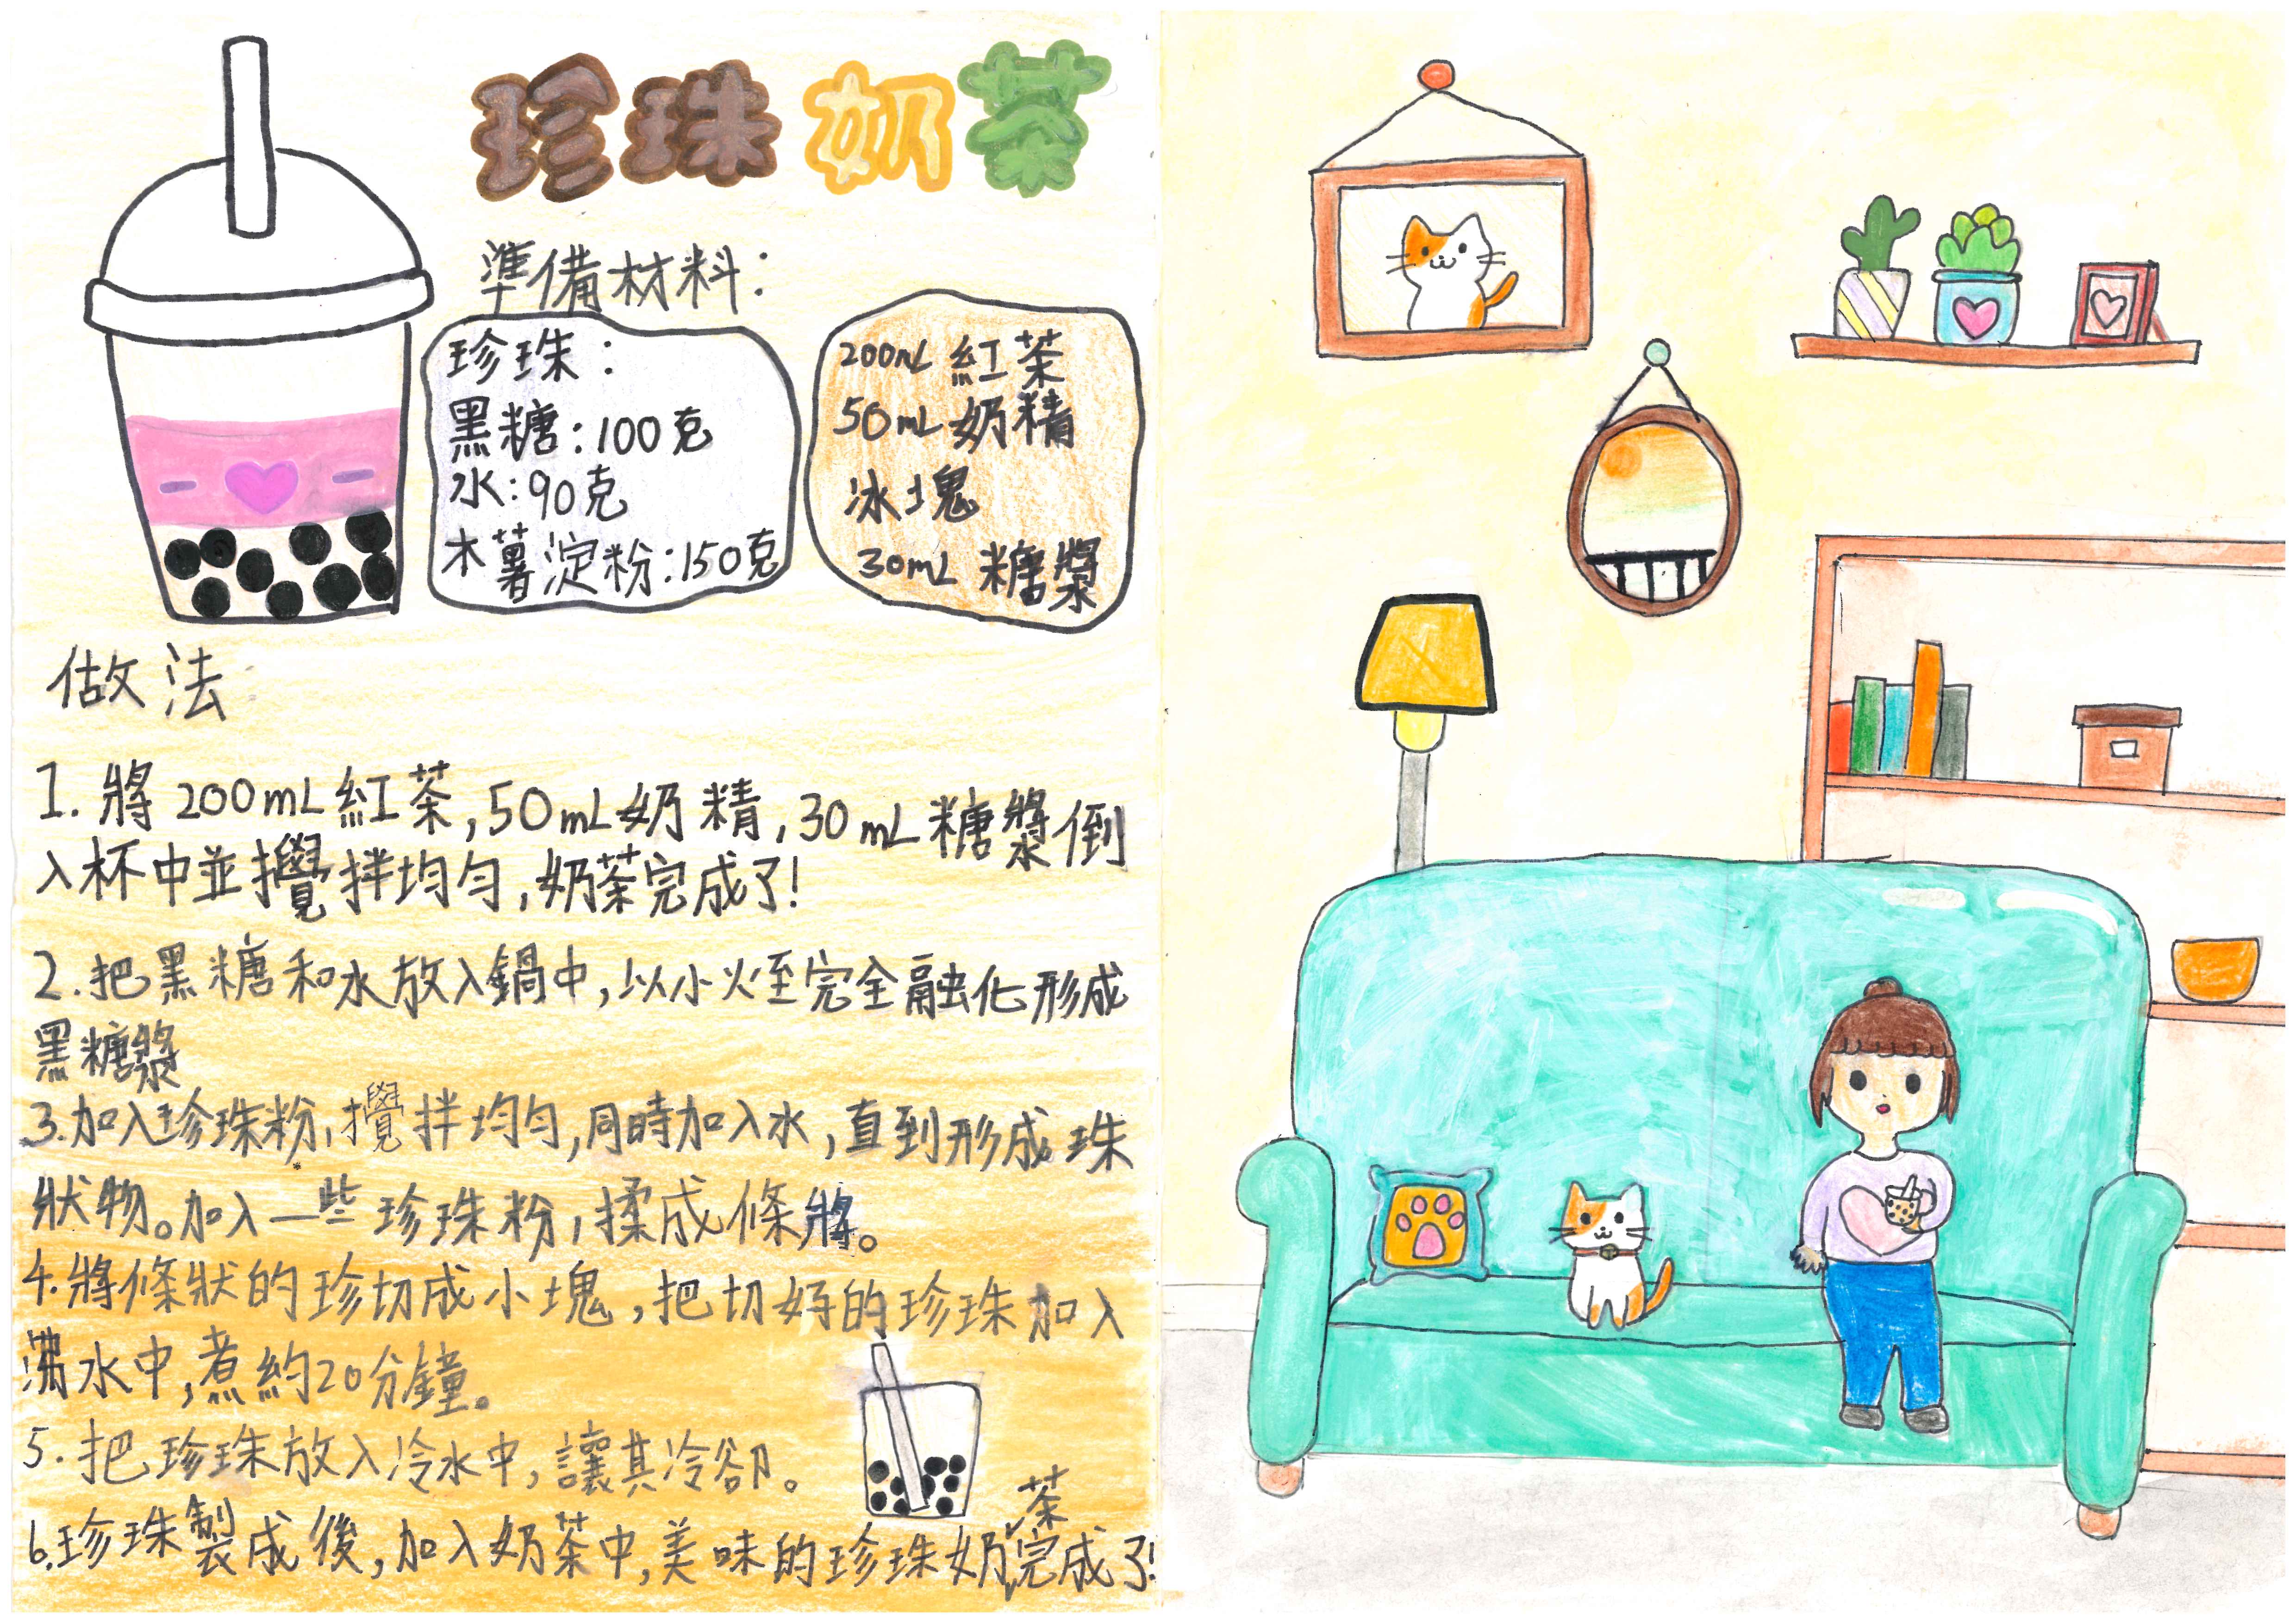 珍珠奶茶
準備材料：
珍珠：
黑糖：100克
水：90克
木薯澱粉：150克
200mL 紅茶
50mL 奶精
冰塊
30mL 糖漿
做法
1. 將200mL紅茶，50mL奶精，30mL糖漿倒
入杯中並攪拌均勻，奶茶完成了！
2. 把黑糖和水放入鍋中，以小火至完全融化形成
黑糖漿
3. 加入珍珠粉，攪拌均勻，同時加入水，直到形成珠
狀物。加入一些珍珠粉，揉成條將。
4. 將條狀的珍切成小塊，把切好的珍珠加入
沸水中，煮約20分鐘。
5. 把珍珠放入冷水中，讓其冷卻。
6. 珍珠製成後，加入奶茶中，美味的珍珠奶茶完成了！